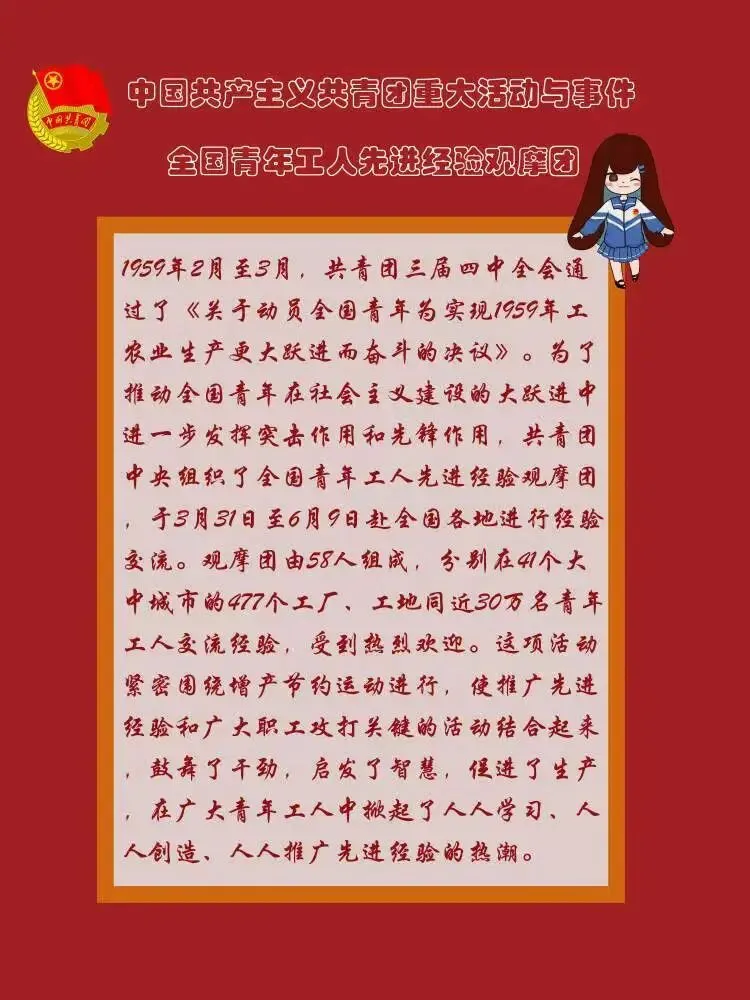 中国共青团
中国共产主义共青团重大活动与事件
全国青年工人先进经验观摩团
1959年2月至3月，共青团三届四中全会通
过了《关于动员全国青年为实现1959年工
农业生产更大跃进而奋斗的决议》。为了
推动全国青年在社会主义建设的大跃进中
进一步发挥突击作用和先锋作用，共青团
中央组织了全国青年工人先进经验观摩团
，于3月31日至6月9日赴全国各地进行经验
交流。观摩团由58人组成，分别在41个大
中城市的477个工厂、工地同近30万名青年
工人交流经验，受到热烈欢迎。这项活动
紧密围绕增产节约运动进行，使推广先进
经验和广大职工攻打关键的活动结合起来
，鼓舞了干劲，启发了智慧，促进了生产
，在广大青年工人中掀起了人人学习、人
人创造、人人推广先进经验的热潮。